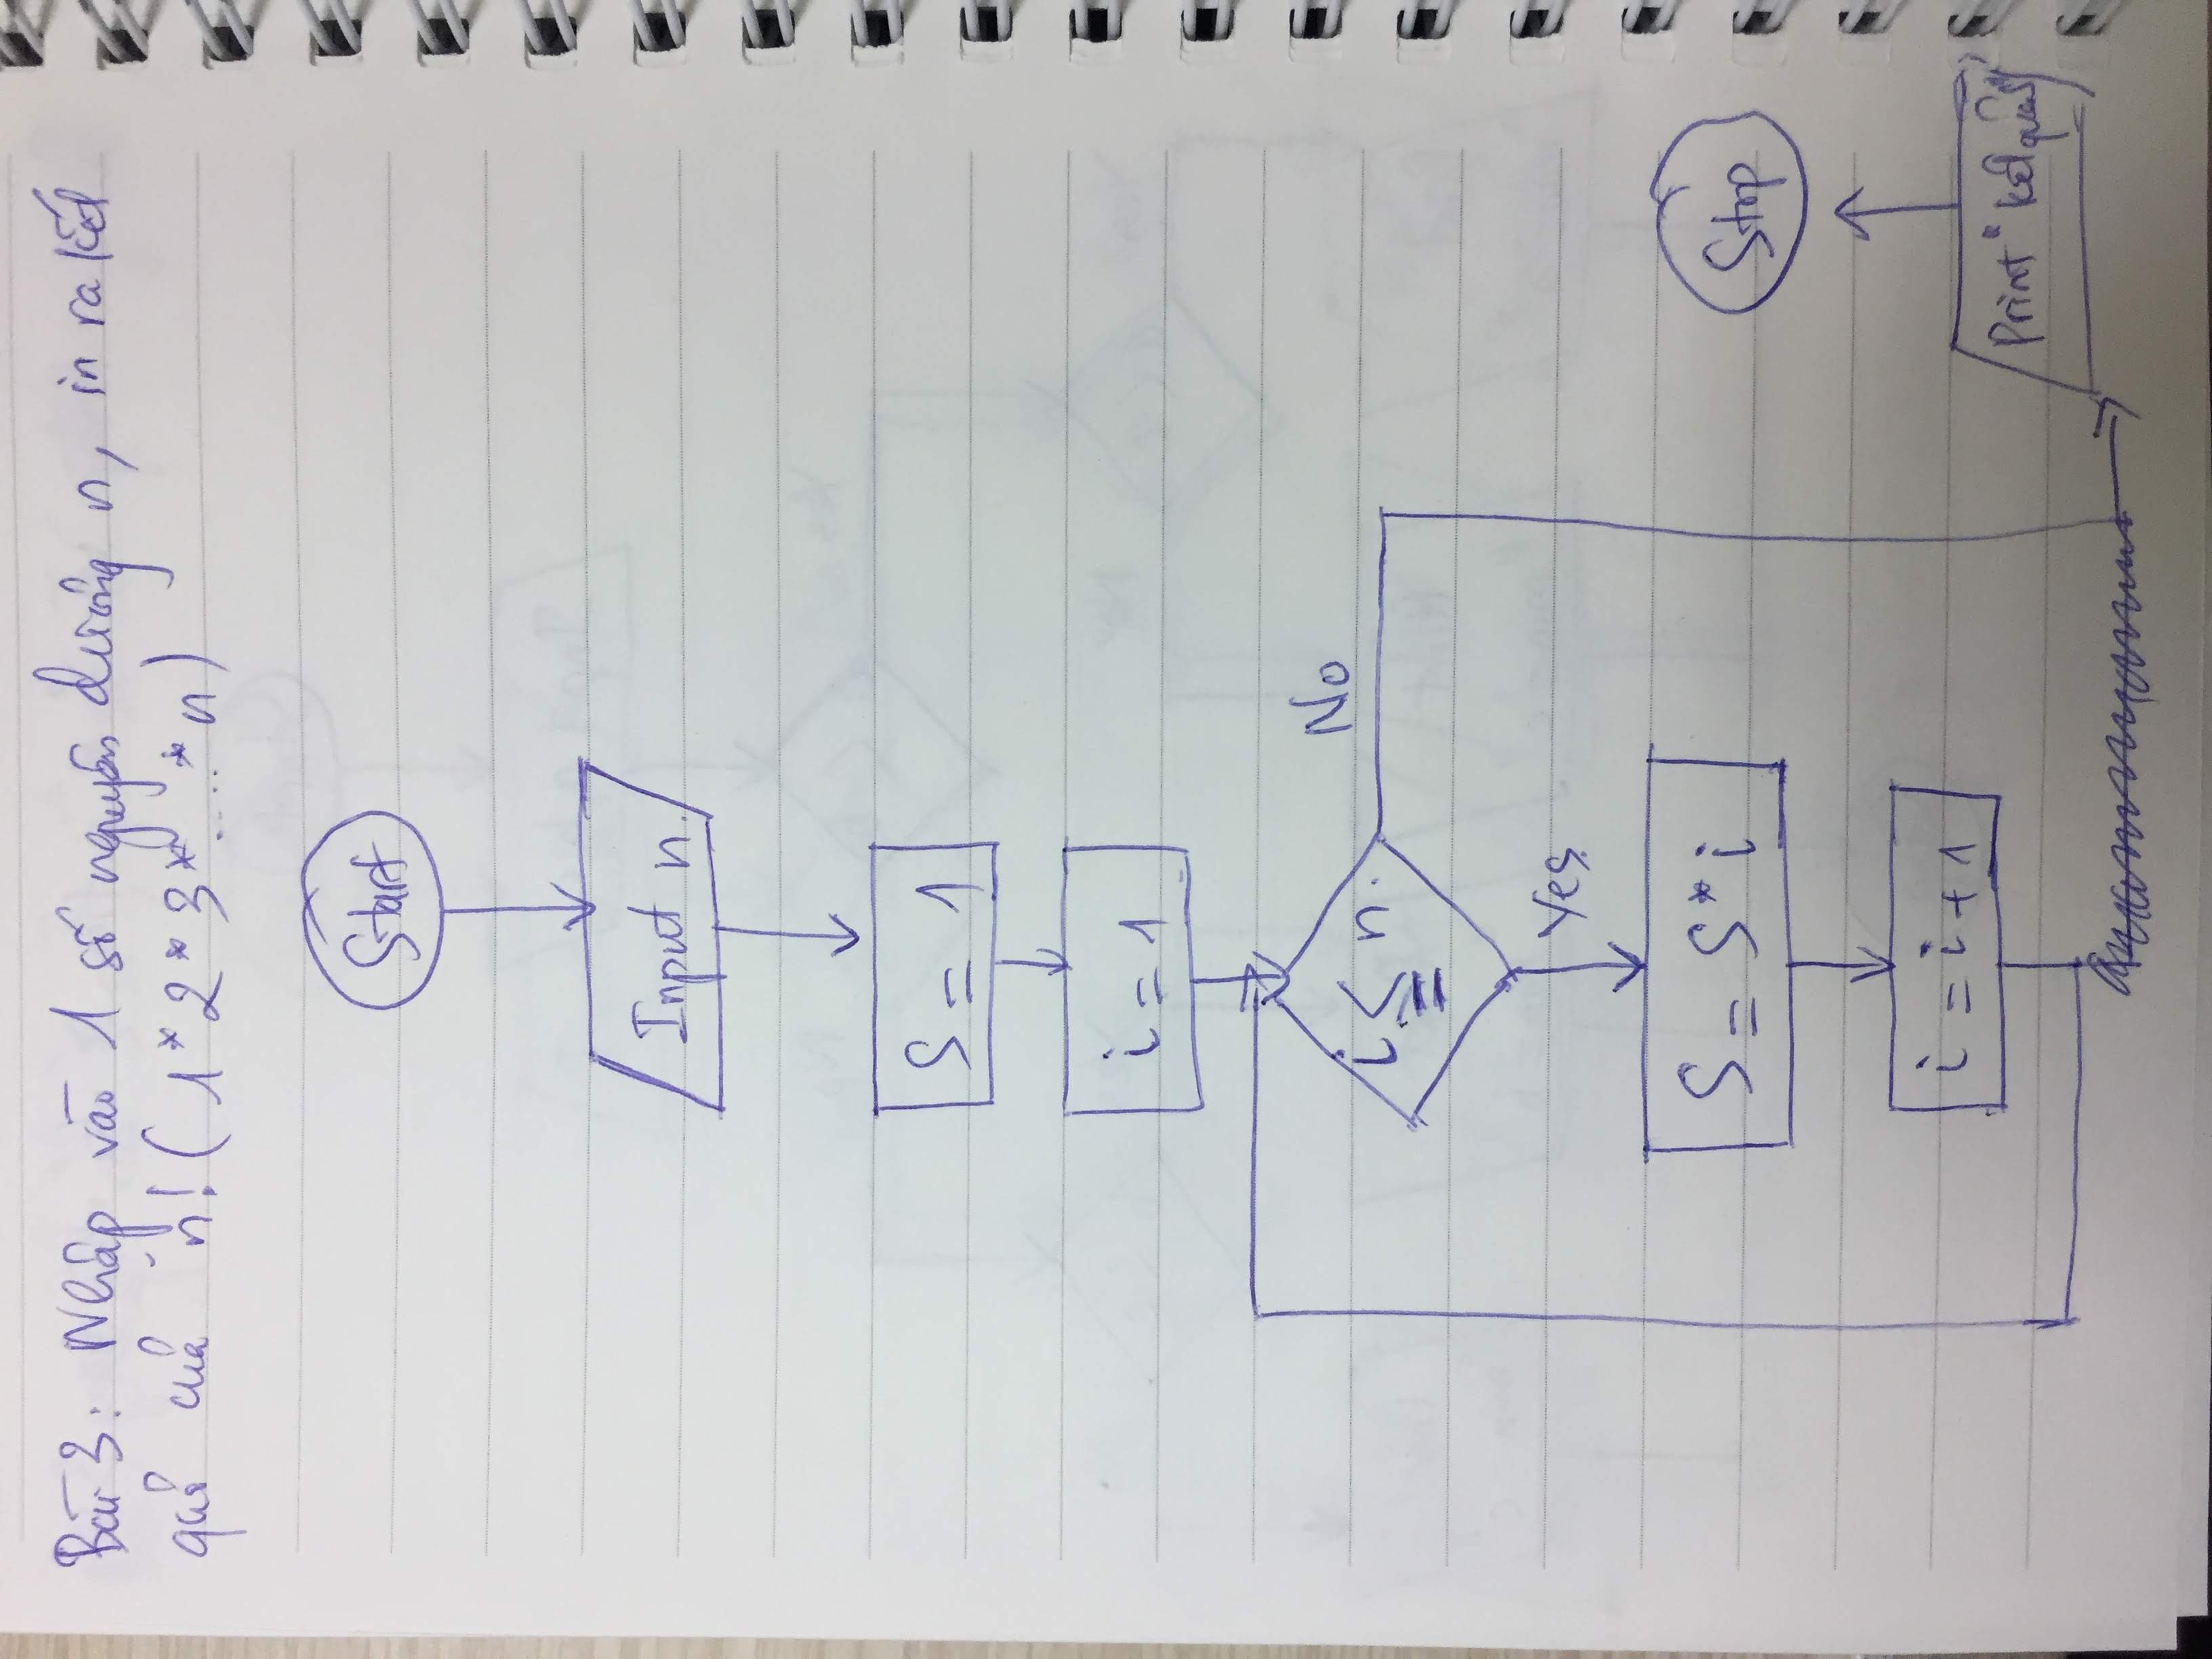 Bài 3: Nhập vào 1 số nguyên dương n, in ra kết
quả của n! (1*2*3*....*n)
Start
Input n.
S = 1
i = 1
i ≤ n.
No
Yes
S = S*i
i = i+1
Stop
Print "kết quả"